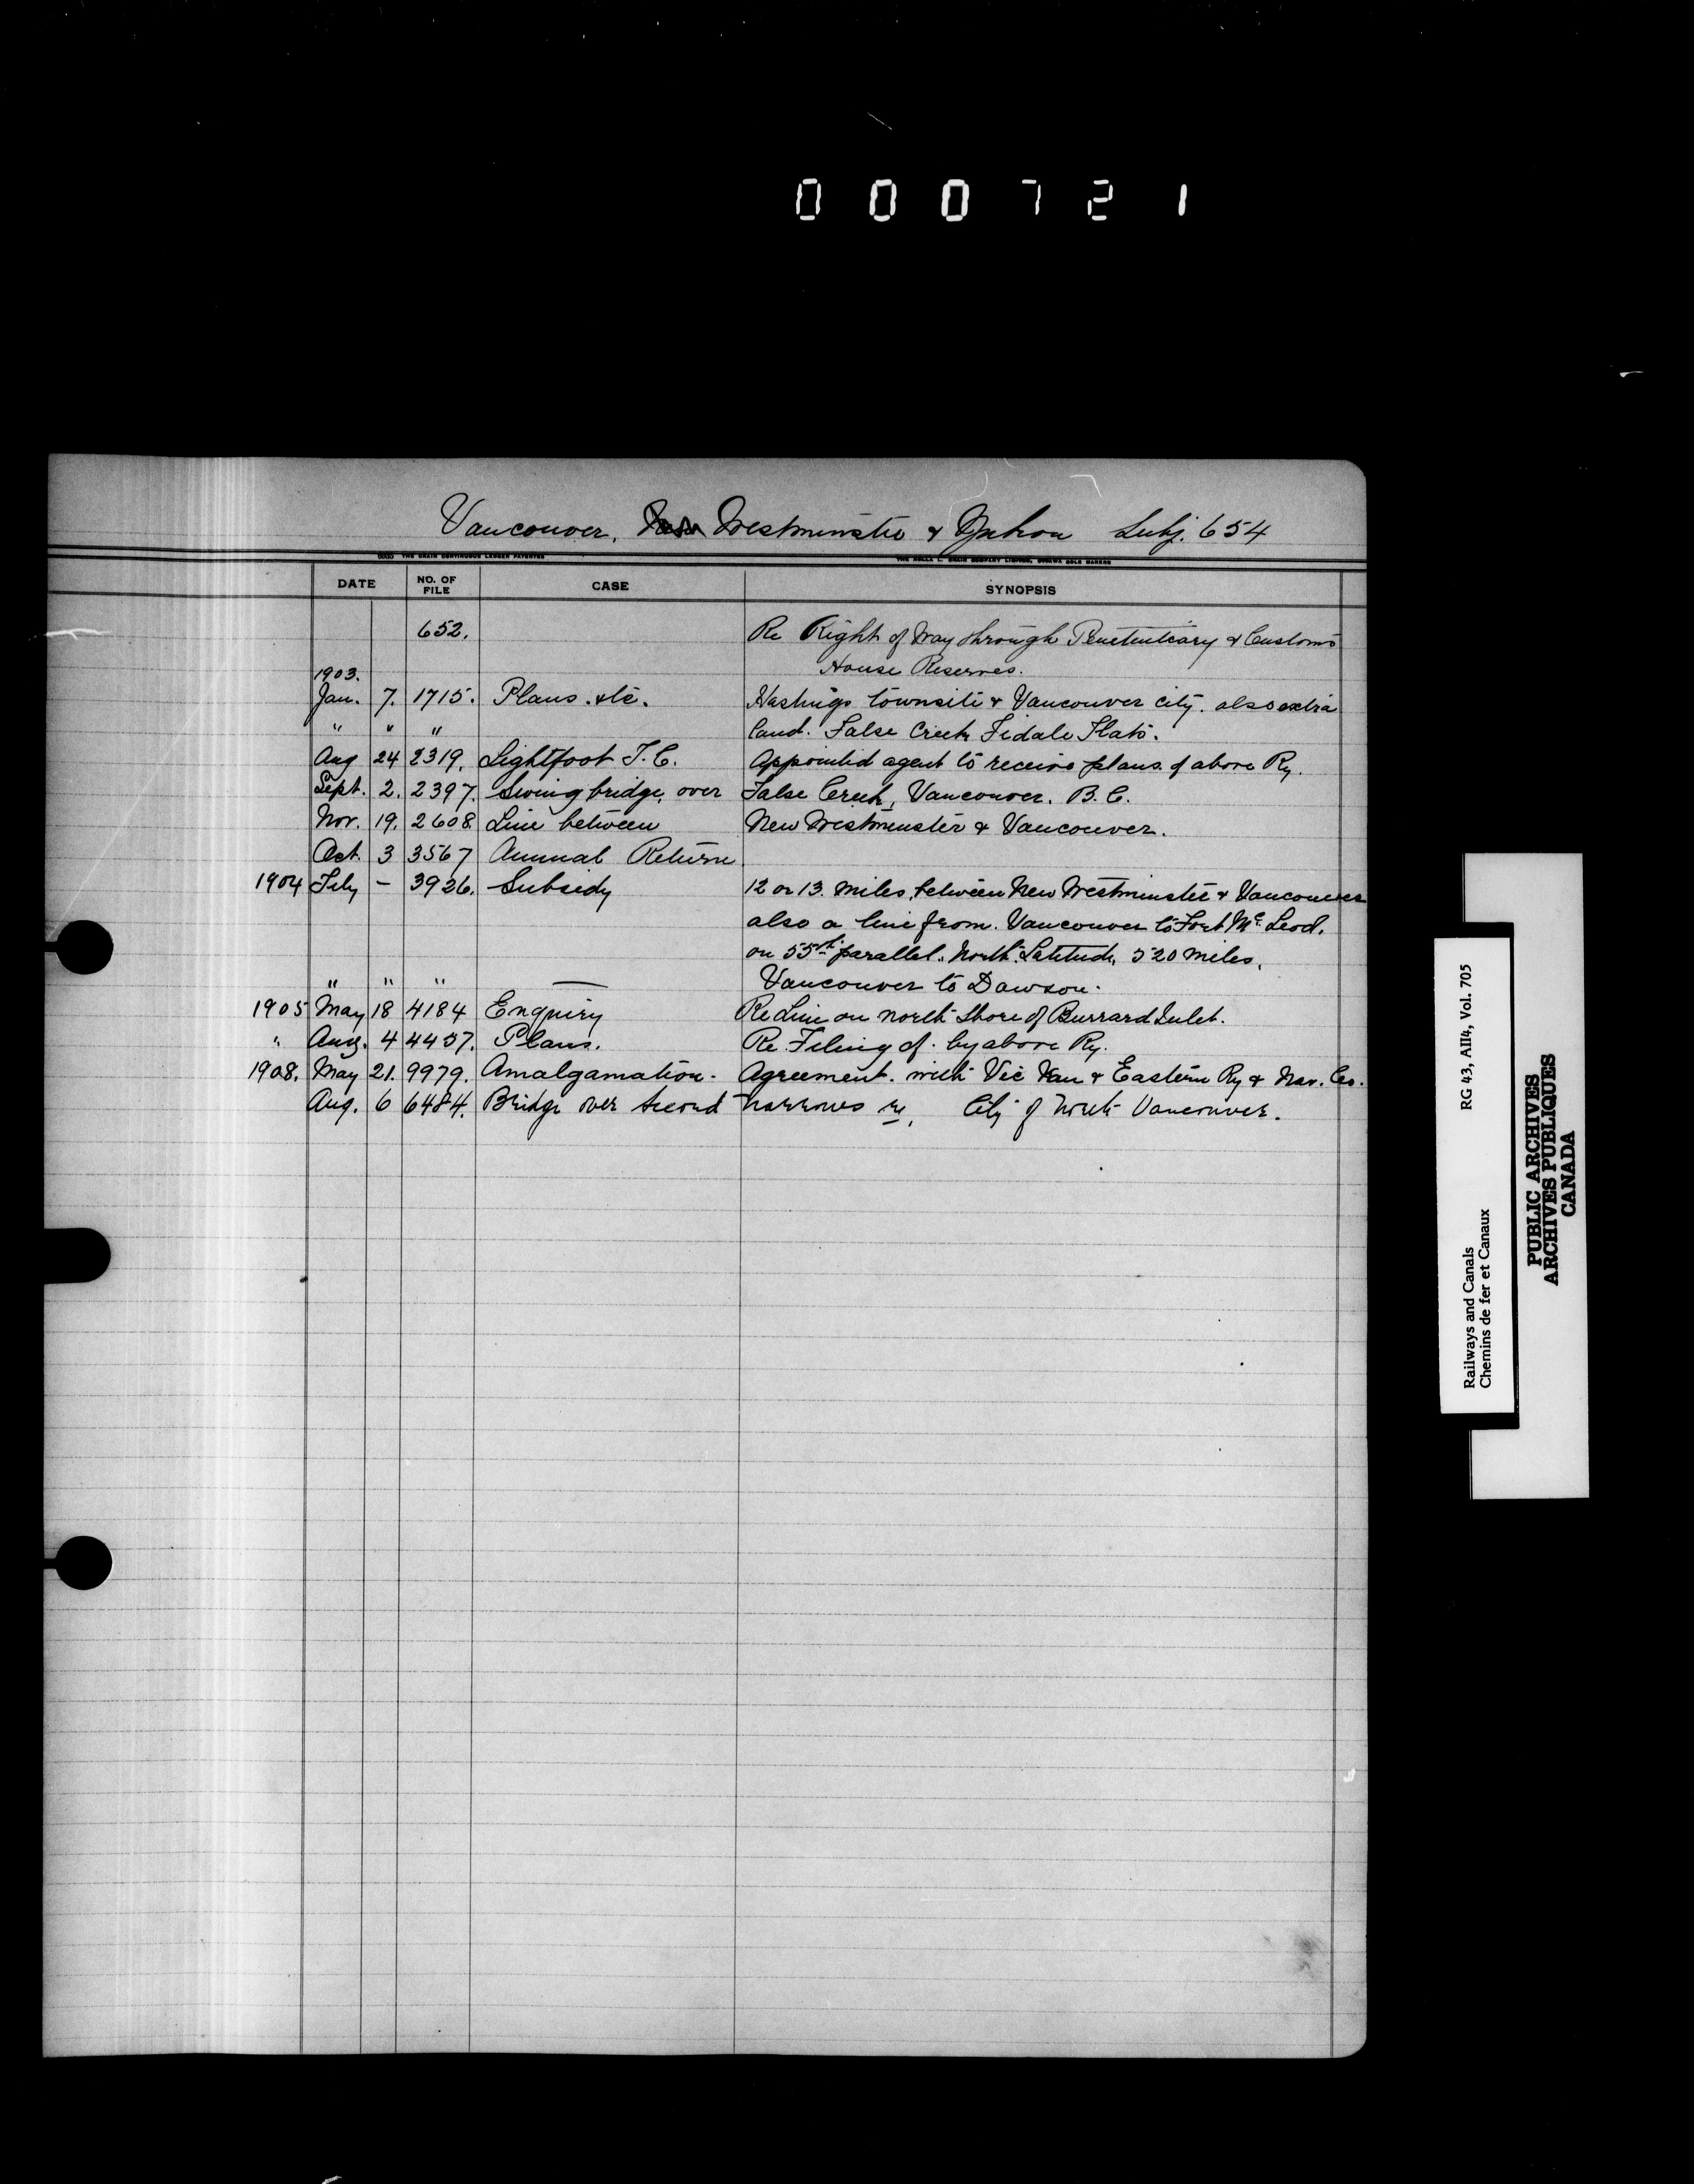 000721
Vancouver, Westminster & Yukon Subj. 654
THE BRAIN CONTINUOUS LEDGER PATENTED
DATE NO. OF FILE CASE SYNOPSIS
652. Re Right of Way through Penetentiary & Customs
House Reserves.
1903.
Jan. 7. 1715. Plans. etc. Hastings townsite & Vancouver city. also extra
" " " land. False Creek Tidale Flats.
Aug 24 2319. Lightfoot T. C. Appointed agent to receive plans of above Ry.
Sept. 2. 2397. Swing bridge, over False Creek, Vancouver. B. C.
Nov. 19. 2608. Line between New Westminster & Vancouver.
Oct. 3 3567 Annual Return
1904 July – 3926. Subsidy 12 or 13. miles, between New Westminster & Vancouver
also a line from. Vancouver to Fort Mc Leod.
on 55th parallel. North. Latitude, 520 miles.
" " " — Vancouver to Dawson.
1905 May 18 4184 Enquiry Re Line on north shore of Burrard Inlet.
" Aug. 4 4457. Plans. Re. Filing of. by above Ry.
1908. May 21. 9979. Amalgamation. Agreement. with Vic Van & Eastern Ry & Nav. Co.
Aug. 6 6484. Bridge over Second Narrows re, City of North Vancouver.
RG 43, AII4, Vol. 705
Railways and Canals
Chemins de fer et Canaux
PUBLIC ARCHIVES
ARCHIVES PUBLIQUES
CANADA